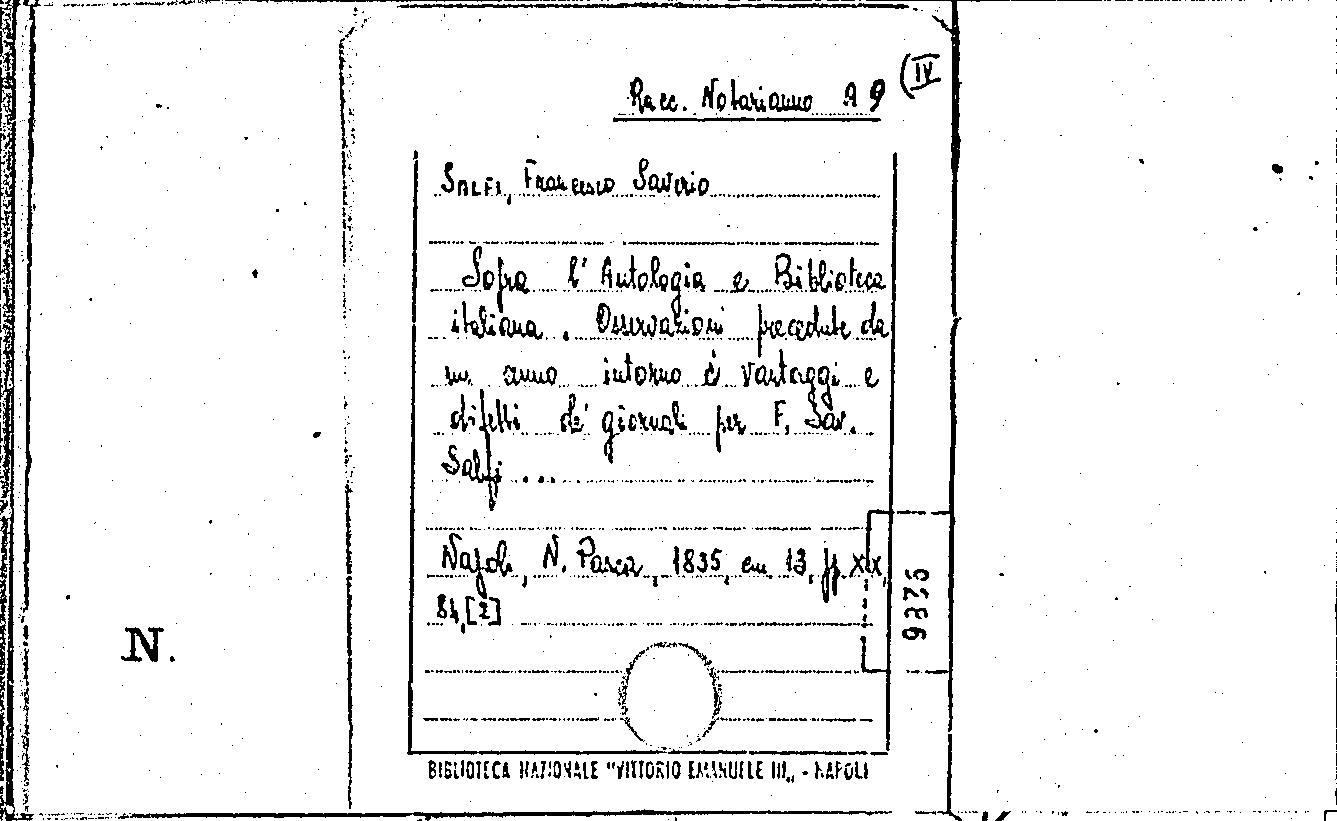 (IV
Racc. Notarianno A 9
SALFI, Francesco Saverio
Sopra l'Antologia e Biblioteca
italiana. Osservazioni precedute da
un anno intorno a' vantaggi e
difetti de' giornali per F. Sav.
Salfi ...
Napoli, N. Pasca, 1835, cm 13, pp. XIX,
84, [2]
9336
N.
BIBLIOTECA NAZIONALE "VITTORIO EMANUELE III„ - NAPOLI